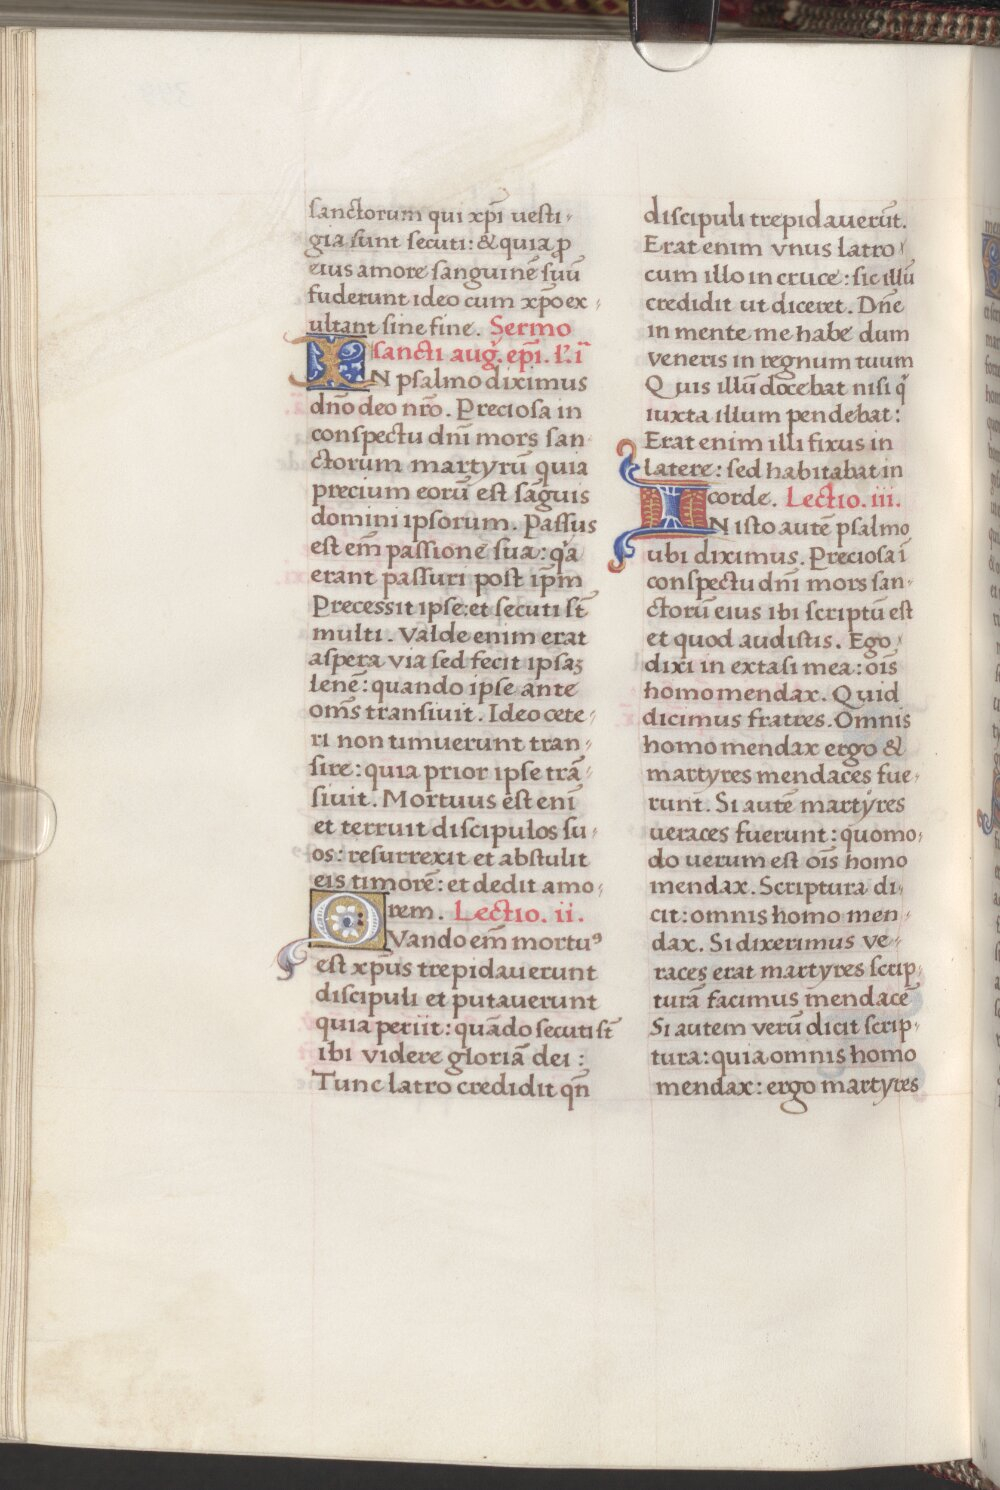 sanctorum qui xp̄i uesti-
gia sunt secuti: & quia ꝓ
eius amore sanguinē suū
fuderunt ideo cum xp̄o ex-
ultant sine fine. Sermo
sancti auḡ. ep̄i. l'. i̅
IN psalmo diximus
dn̄o deo nr̄o. Preciosa in
conspectu dn̄i mors san-
ctorum martyrū quia
precium eorū est sāguis
domini ipsorum. Passus
est em̄ passione sua: q̇a
erant passuri post ip̄m
Precessit ipse: et secuti st̄
multi. Valde enim erat
aspera via sed fecit ipsaꝫ
lenē: quando ipse ante
om̄s transiuit. Ideo cete-
ri non timuerunt tran-
sire: quia prior ipse trā-
siuit. Mortuus est eni̅
et terruit discipulos su-
os: resurrexit et abstulit
eis timorē: et dedit amo-
rem. Lectio. ii.
QVando em̄ mortuꝰ
est xp̄us trepidauerunt
discipuli et putauerunt
quia periit: quādo secuti st̄
ibi videre gloriā dei:
Tunc latro credidit qn̄
discipuli trepidauerūt.
Erat enim vnus latro
cum illo in cruce: sic illū
credidit ut diceret. Dn̄e
in mente me habe dum
veneris in regnum tuum
Quis illū docebat nisi q̇
iuxta illum pendebat:
Erat enim illi fixus in
latere: sed habitabat in
corde. Lectio. iii.
IN isto autē psalmo
ubi diximus. Preciosa i̅
conspectu dn̄i mors san-
ctorū eius ibi scriptū est
et quod audistis. Ego
dixi in extasi mea: ois̄
homo mendax. Quid
dicimus fratres. Omnis
homo mendax ergo &
martyres mendaces fue-
runt. Si autē martyres
ueraces fuerunt: quomo-
do uerum est ois̄ homo
mendax. Scriptura di-
cit: omnis homo men-
dax. Si dixerimus ve-
races erat martyres scrip-
turā facimus mendacē
Si autem verū dicit scrip-
tura: quia omnis homo
mendax: ergo martyres